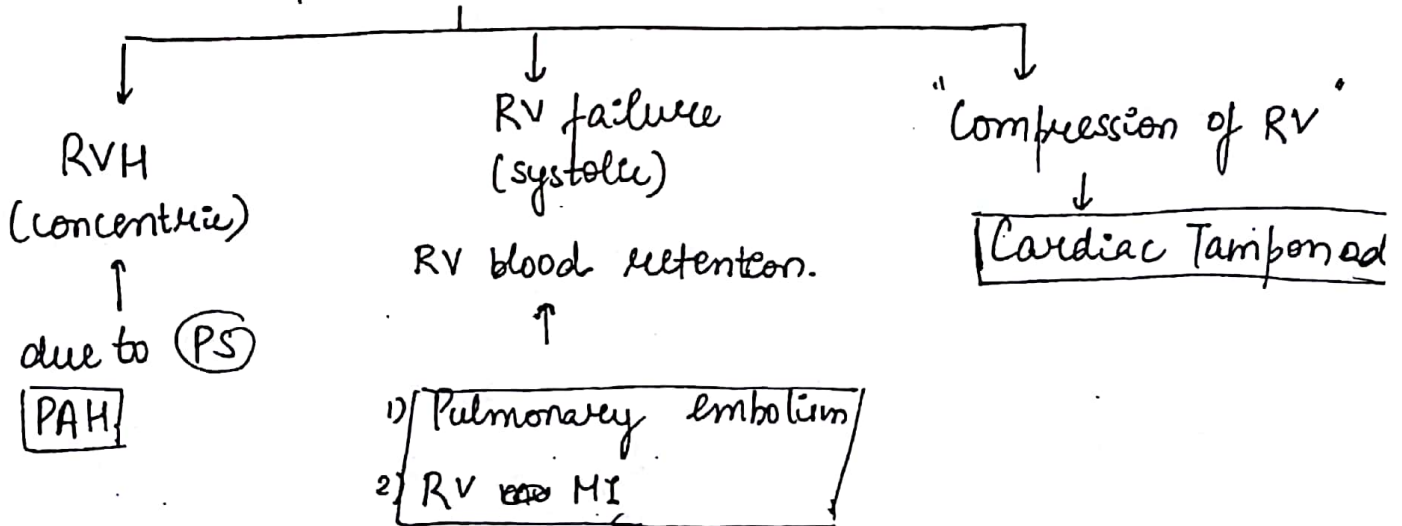 RVH
(concentric)
↑
due to PS
PAH
RV failure
(systolic)
RV blood retention.
↑
1) Pulmonary embolism
2) RV MI
"Compression of RV"
↓
Cardiac Tamponad